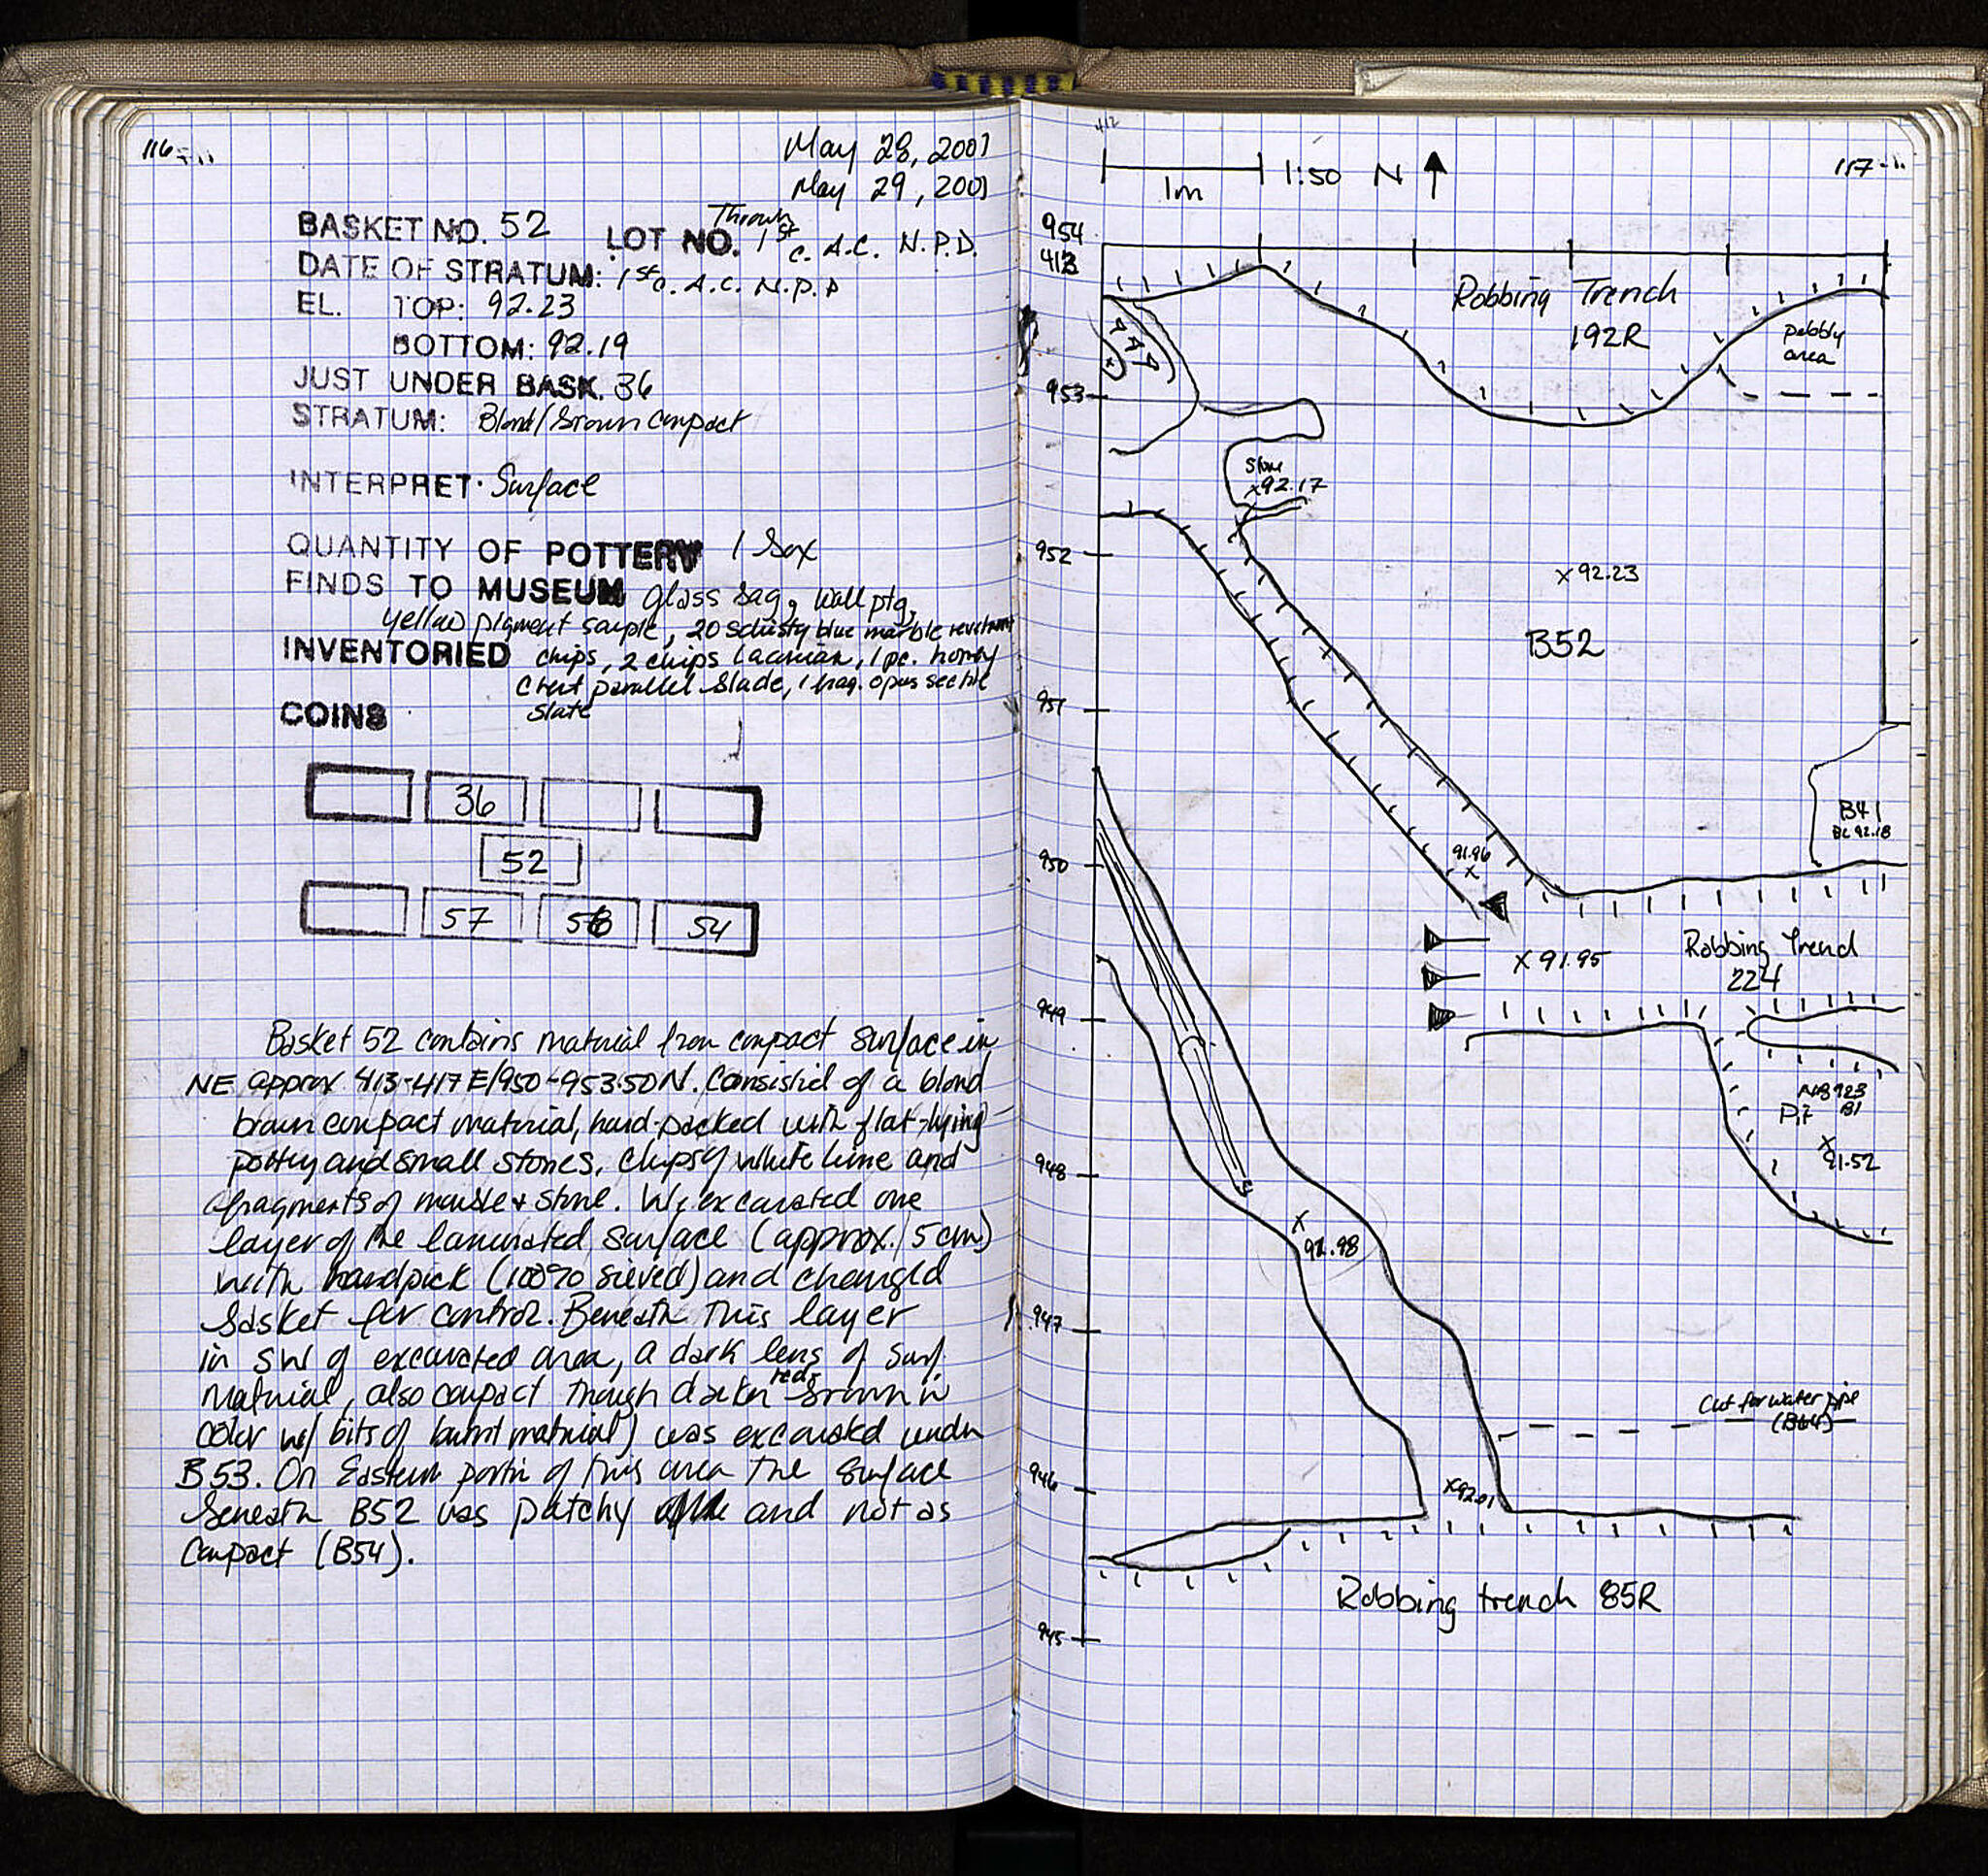 116
May 28, 2001
May 29, 2001
BASKET NO. 52
LOT NO. Thrown
1st c. A.C. N.P.D.
DATE OF STRATUM: 1st c. A.C. N.P.D
EL. TOP: 92.23
BOTTOM: 92.19
JUST UNDER BASK. 36
STRATUM: Blond/brown compact
INTERPRET. Surface
QUANTITY OF POTTERY 1 box
FINDS TO MUSEUM glass bag, wall ptg,
yellow pigment sample, 20 schisty blue marble revetment
INVENTORIED chips, 2 chips Laconian, 1 pc. honey
chert parallel blade, 1 frag. opus sectile
slate
COINS
36
52
57 56 54
Basket 52 contains material from compact surface in
NE approx 413-417 E/950-953.50 N. Consisted of a blond
brown compact material, hard-packed with flat-lying
pottery and small stones, chips of white lime and
fragments of marble + stone. We excavated one
layer of the laminated surface (approx. 5 cm)
with handpick (100% sieved) and changed
basket for control. Beneath this layer
in SW of excavated area, a dark lens of surf.
material, also compact though darker red-brown in
color w/ bits of burnt material) was excavated under
B53. On Eastern portin of this area the surface
beneath B52 was patchy and not as
compact (B54).
412
1m
1:50 N
117
954
413
Robbing Trench
192R
pebbly
area
953
Stone
x92.17
952
x 92.23
B52
951
B41
BE 92.18
950
91.96
x
x 91.95
Robbing Trench
224
949
NB 923
Pit B1
x
91.52
948
x
91.98
947
Cut for water pipe
(B64)
946
x92.01
Robbing trench 85R
945